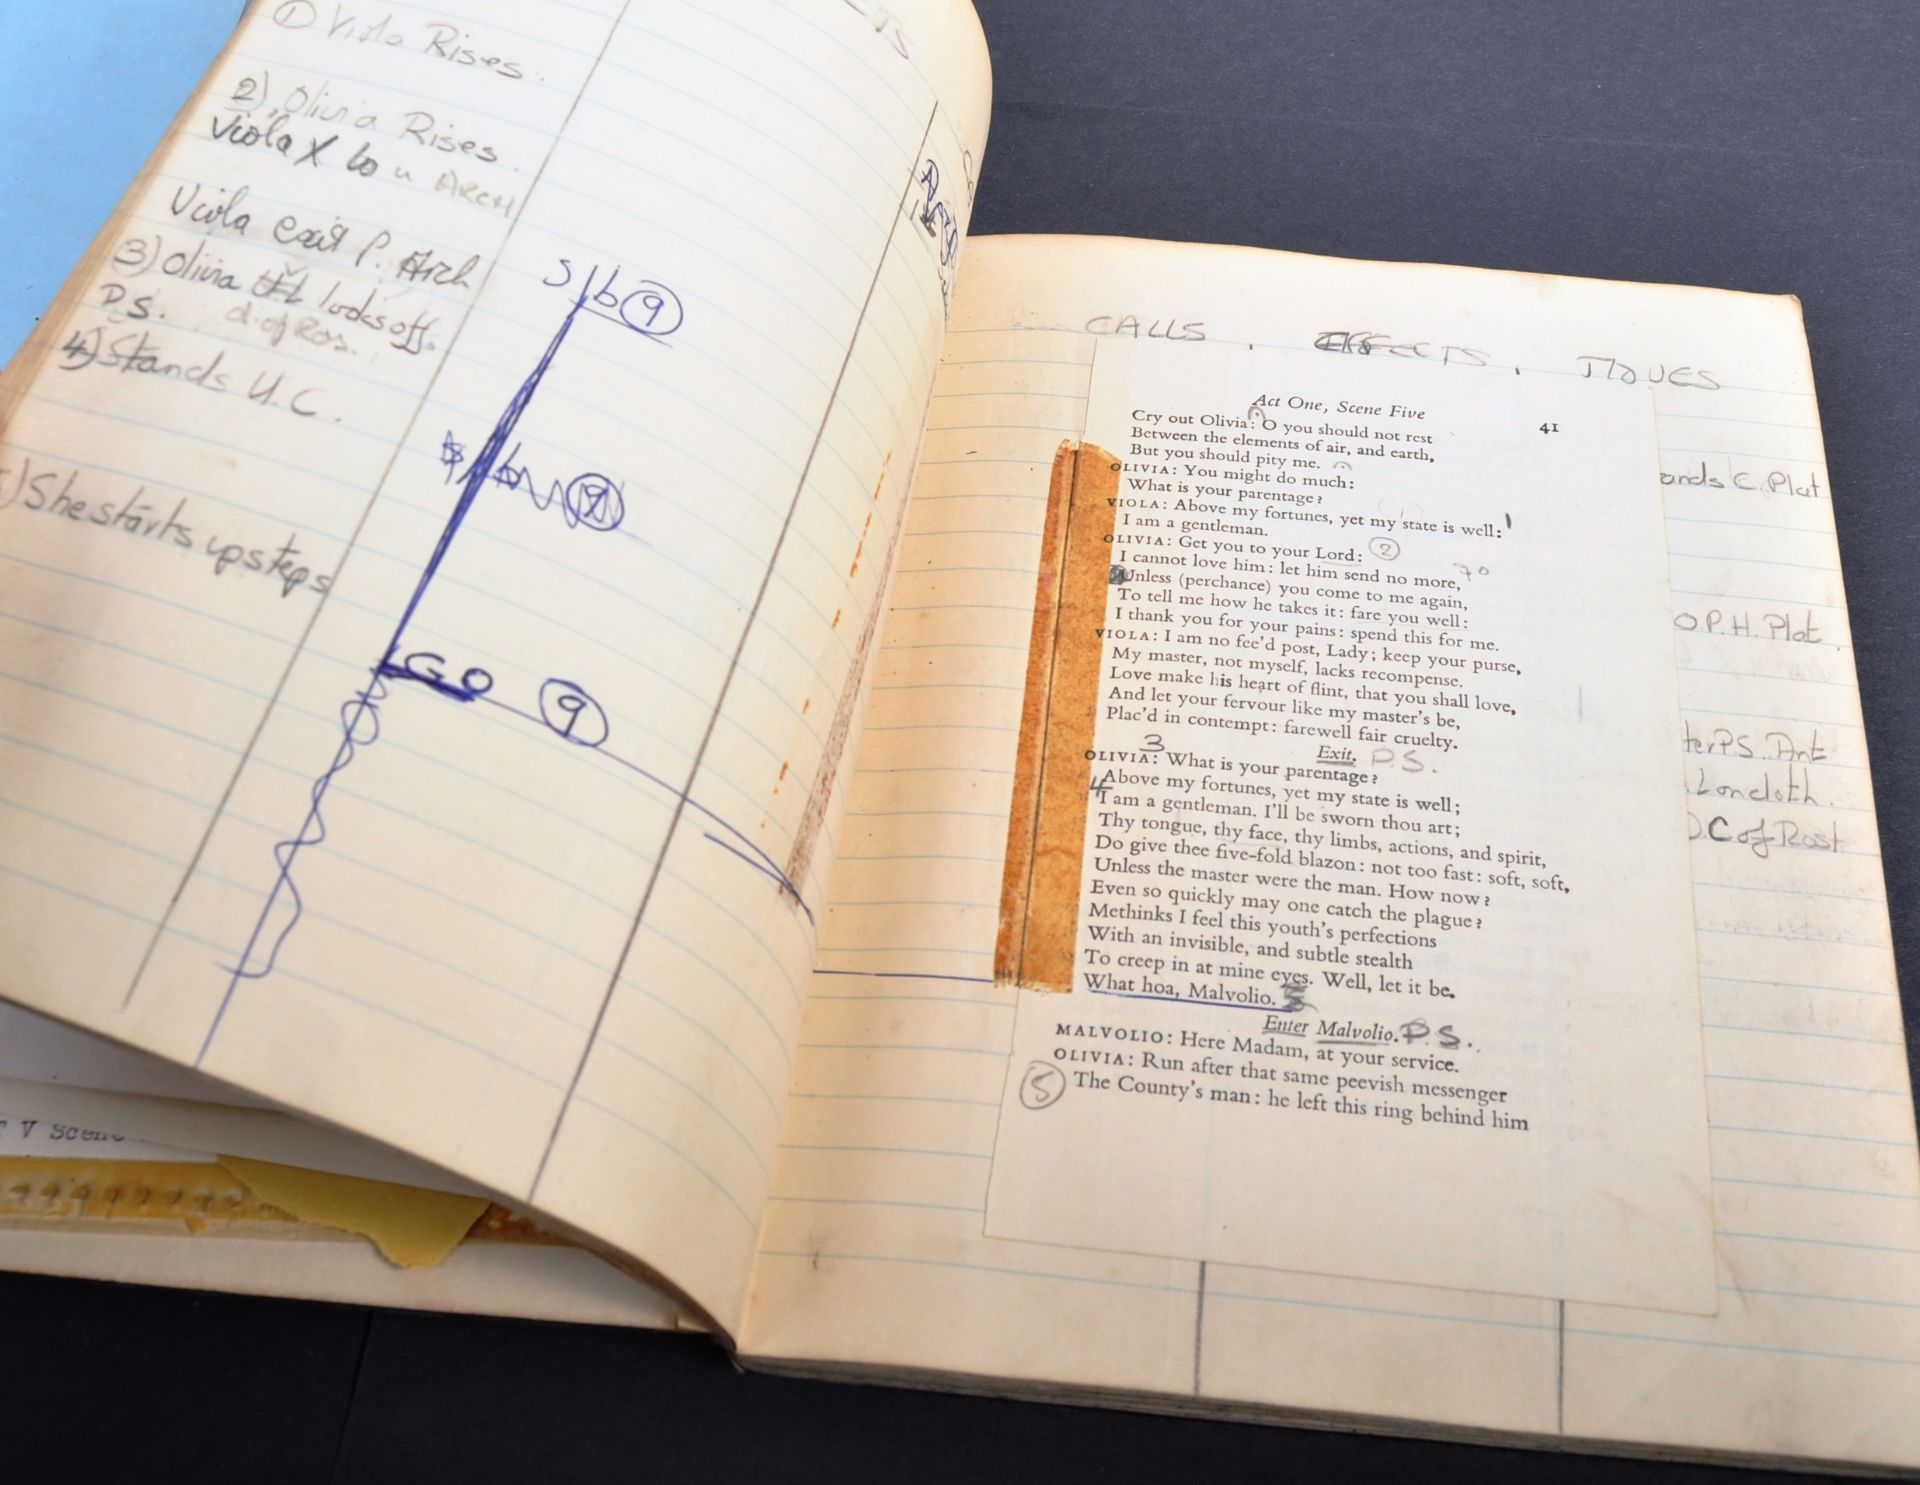 ① Viola Rises.
2) Olivia Rises.
Viola X to u ARCH
Viola exit P. Arch
3) Olivia looks off.
D.S.
4) Stands U.C.
) She starts up steps
S/b ⑨
S/b ⑨
GO ⑨
T V Scene
CALLS, EFFECTS, MOVES
Act One, Scene Five
41
Cry out Olivia: O you should not rest
Between the elements of air, and earth,
But you should pity me.
OLIVIA: You might do much:
What is your parentage?
VIOLA: Above my fortunes, yet my state is well: 1
I am a gentleman.
OLIVIA: Get you to your Lord: ②
I cannot love him: let him send no more,
Unless (perchance) you come to me again,
To tell me how he takes it: fare you well:
I thank you for your pains: spend this for me.
VIOLA: I am no fee'd post, Lady; keep your purse,
My master, not myself, lacks recompense.
Love make his heart of flint, that you shall love,
And let your fervour like my master's be,
Plac'd in contempt: farewell fair cruelty.
Exit. P.S.
3
OLIVIA: What is your parentage?
Above my fortunes, yet my state is well;
4
I am a gentleman. I'll be sworn thou art;
Thy tongue, thy face, thy limbs, actions, and spirit,
Do give thee five-fold blazon: not too fast: soft, soft,
Unless the master were the man. How now?
Even so quickly may one catch the plague?
Methinks I feel this youth's perfections
With an invisible, and subtle stealth
To creep in at mine eyes. Well, let it be.
What hoa, Malvolio.
Enter Malvolio. P.S.
MALVOLIO: Here Madam, at your service.
OLIVIA: Run after that same peevish messenger
⑤ The County's man: he left this ring behind him
ands C. Plat
O.P.H. Plat
ter P.S. Ant
C of Rost